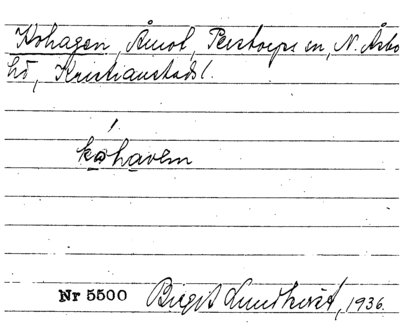 Kohagen, Åmot, Perstorps sn, N. Åsbo
hd, Kristianstads l.
kohaven
Nr 5500 Birgit Lundkvist, 1936.